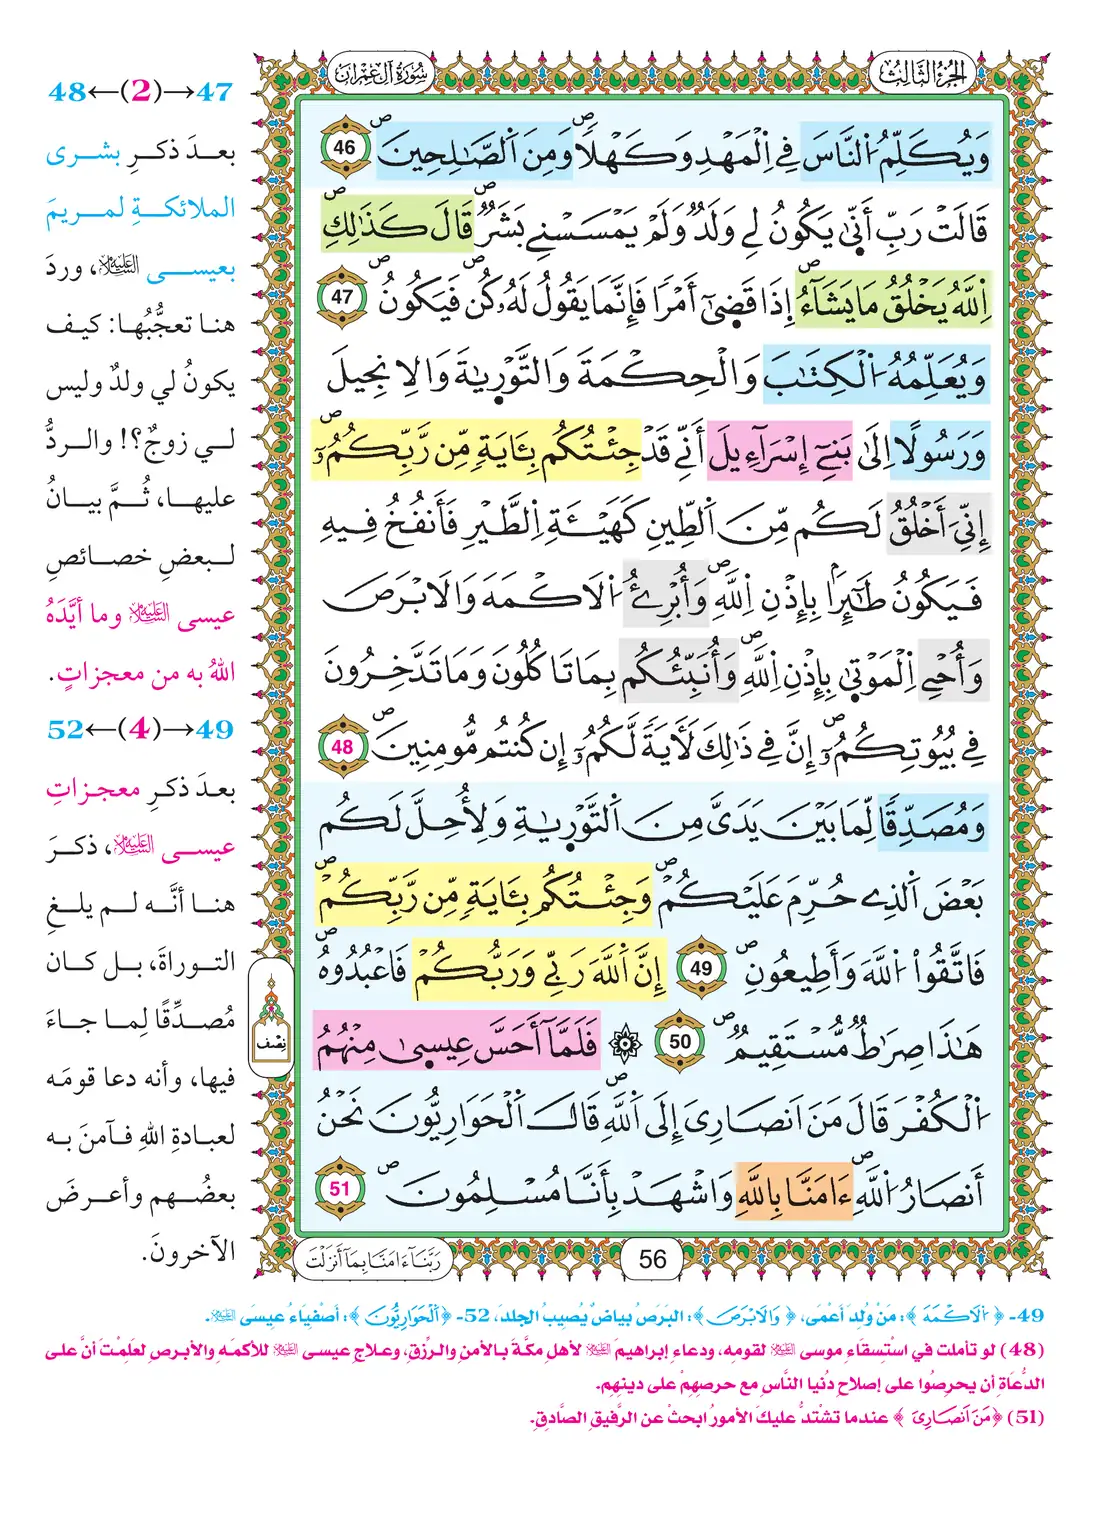 الجزء الثالث
سورة آل عمران
وَيُكَلِّمُ اُ۬لنَّاسَ فِے اِ۬لْمَهْدِ وَكَهْلاٗ وَمِنَ اَ۬لصَّٰلِحِينَۖ 46
قَالَتْ رَبِّ أَنّ۪يٰ يَكُونُ لِے وَلَدٞ وَلَمْ يَمْسَسْنِے بَشَرٞۖ قَالَ كَذَٰلِكِ
اِ۬للَّهُ يَخْلُقُ مَا يَشَآءُۖ إِذَا قَض۪يٰٓ أَمْراٗ فَإِنَّمَا يَقُولُ لَهُۥ كُن فَيَكُونُۖ 47
وَيُعَلِّمُهُ اُ۬لْكِتَٰبَ وَالْحِكْمَةَ وَالتَّوْر۪يٰةَ وَالِانجِيلَ
وَرَسُولاً اِلَىٰ بَنِےٓ إِسْرَآءِيلَ أَنِّے قَدْ جِئْتُكُم بِـَٔايَةٖ مِّن رَّبِّكُمُۥٓۖ
إِنِّيَ أَخْلُقُ لَكُم مِّنَ اَ۬لطِّينِ كَهَيْـَٔةِ اِ۬لطَّيْرِ فَأَنفُخُ فِيهِ
فَيَكُونُ طَٰٓئِراَۢ بِإِذْنِ اِ۬للَّهِۖ وَأُبْرِۓُ اُ۬لَاكْمَهَ وَالَابْرَصَ
وَأُحْيِ اِ۬لْمَوْت۪يٰ بِإِذْنِ اِ۬للَّهِۖ وَأُنَبِّئُكُم بِمَا تَاكُلُونَ وَمَا تَدَّخِرُونَ
فِے بُيُوتِكُمُۥٓۖ إِنَّ فِے ذَٰلِكَ لَأٓيَةٗ لَّكُمُۥٓ إِن كُنتُم مُّومِنِينَۖ 48
وَمُصَدِّقاٗ لِّمَا بَيْنَ يَدَيَّ مِنَ اَ۬لتَّوْر۪يٰةِ وَلِأُحِلَّ لَكُم
بَعْضَ اَ۬لذِے حُرِّمَ عَلَيْكُمْۖ وَجِئْتُكُم بِـَٔايَةٖ مِّن رَّبِّكُمْۖ
فَاتَّقُواْ اُ۬للَّهَ وَأَطِيعُونِۖ 49 إِنَّ اَ۬للَّهَ رَبِّے وَرَبُّكُمْ فَاعْبُدُوهُۖ
هَٰذَا صِرَٰطٞ مُّسْتَقِيمٞۖ 50 ۞ فَلَمَّآ أَحَسَّ عِيس۪يٰ مِنْهُمُ
اُ۬لْكُفْرَ قَالَ مَنَ اَنصَارِيَ إِلَى اَ۬للَّهِۖ قَالَ اَ۬لْحَوَارِيُّونَ نَحْنُ
أَنصَارُ اُ۬للَّهِۖ ءَامَنَّا بِاللَّهِ وَاشْهَدْ بِأَنَّا مُسْلِمُونَۖ 51
نصف
56
رَبَّنَآ ءَامَنَّا بِمَآ أَنزَلْتَ
47→(2)←48
بعدَ ذكرِ بشرى
الملائكةِ لمريمَ
بعيسى عليه السلام، وردَ
هنا تعجُّبُها: كيف
يكونُ لي ولدٌ وليس
لي زوجٌ؟! والردُّ
عليها، ثُمَّ بيانُ
لبعضِ خصائصِ
عيسى عليه السلام وما أيَّدَهُ
اللهُ به من معجزاتٍ.
49→(4)←52
بعدَ ذكرِ معجزاتِ
عيسى عليه السلام، ذكرَ
هنا أنَّه لم يلغِ
التوراةَ، بل كان
مُصدِّقًا لِما جاءَ
فيها، وأنه دعا قومَه
لعبادةِ اللهِ فآمنَ به
بعضُهم وأعرضَ
الآخرونَ.
49- ﴿اُ۬لَاكْمَهَ﴾: مَنْ وُلِدَ أعْمَى، ﴿وَالَابْرَصَ﴾: البَرَصُ بياضٌ يُصيبُ الجلدَ، 52- ﴿اَ۬لْحَوَارِيُّونَ﴾: أصْفِيَاءُ عيسَى عليه السلام.
(48) لو تأملت في استِسقَاءِ موسى عليه السلام لقومِه، ودعاءِ إبراهيمَ عليه السلام لأهلِ مكَّةَ بالأمنِ والرِّزقِ، وعلاجِ عيسى عليه السلام للأكمَهِ والأبرصِ لعلِمْتَ أنَّ على
الدُّعَاةِ أن يحرِصُوا على إصلاحِ دُنيا النَّاسِ مع حرصِهِمْ على دينِهِم.
(51) ﴿مَنَ اَنصَارِيَ﴾ عندما تشْتدُّ عليكَ الأمورُ ابحثْ عن الرَّفيقِ الصَّادِقِ.